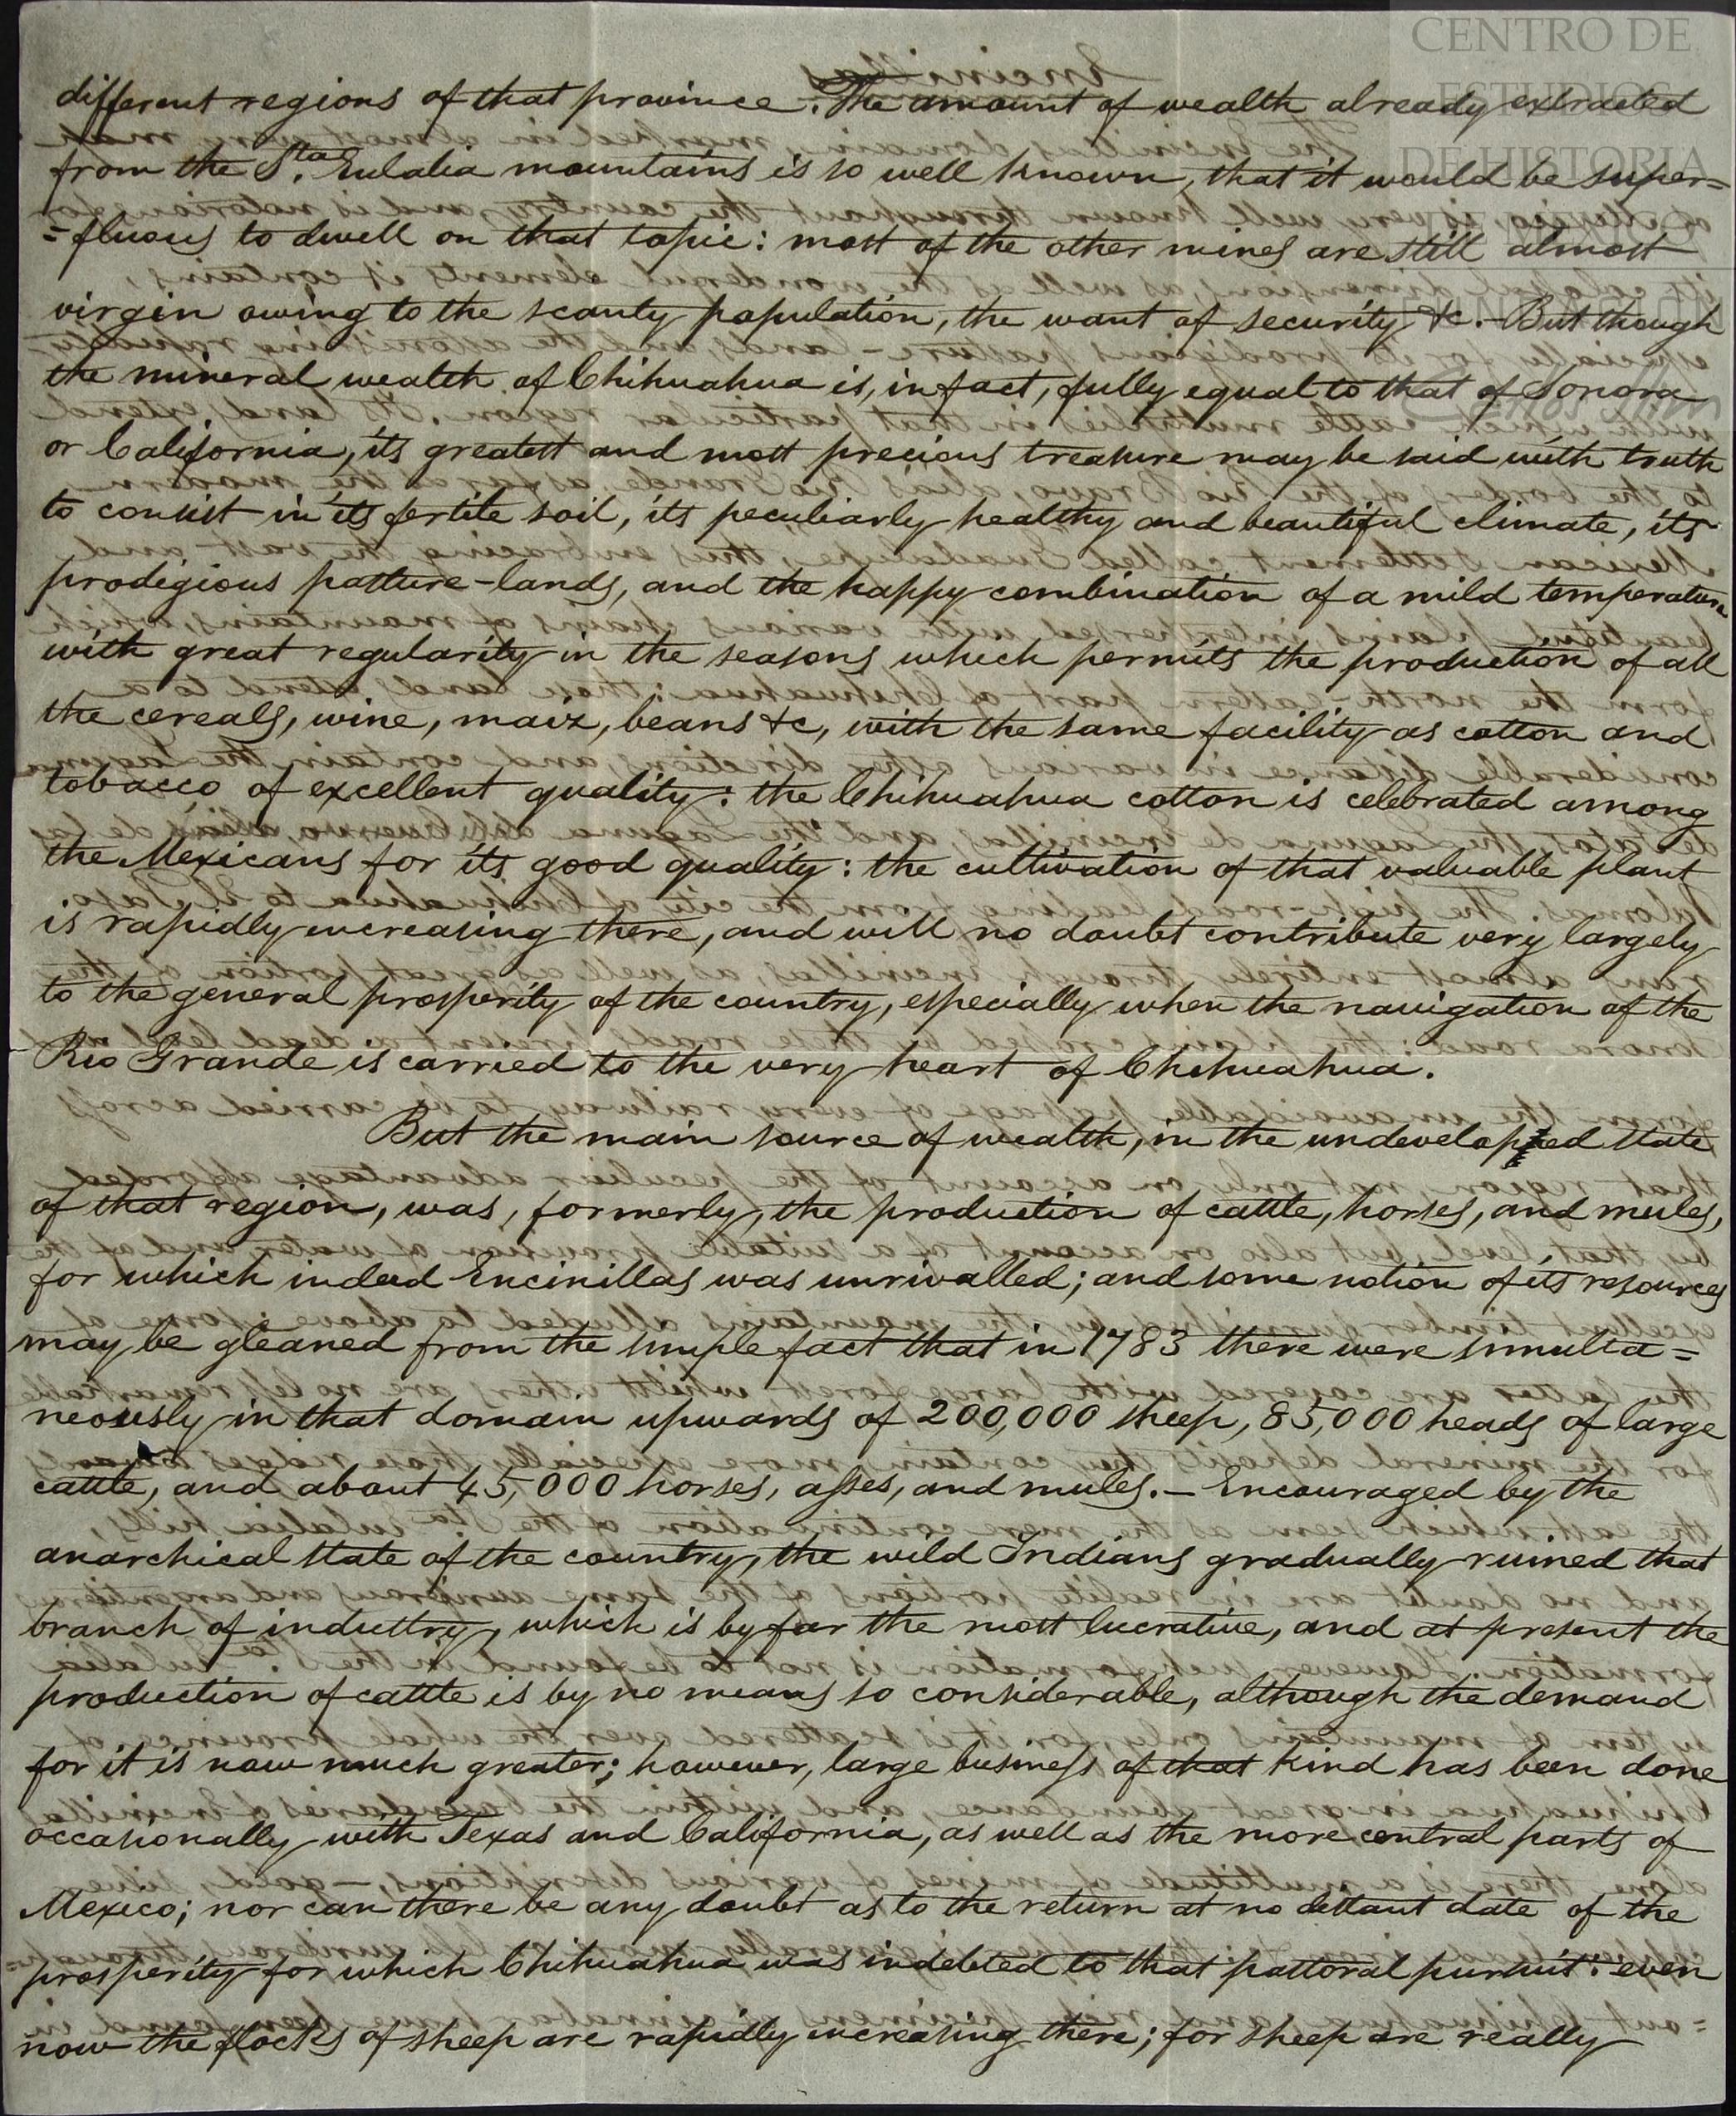 CENTRO DE
ESTUDIOS
DE HISTORIA
different regions of that province. The amount of wealth already extracted
from the Sta. Eulalia mountains is so well known, that it would be super=
=fluous to dwell on that topic: most of the other mines are still almost
virgin owing to the scanty population, the want of security &c. But though
the mineral wealth of Chihuahua is, in fact, fully equal to that of Sonora
or California, its greatest and most precious treasure may be said with truth
to consist in its fertile soil, its peculiarly healthy and beautiful climate, its
prodigious pasture-lands, and the happy combination of a mild temperature
with great regularity in the seasons which permits the production of all
the cereals, wine, maiz, beans &c, with the same facility as cotton and
tobacco of excellent quality: the Chihuahua cotton is celebrated among
the Mexicans for its good quality: the cultivation of that valuable plant
is rapidly increasing there, and will no doubt contribute very largely
to the general prosperity of the country, especially when the navigation of the
Rio Grande is carried to the very heart of Chihuahua.
But the main source of wealth, in the undeveloped state
of that region, was, formerly, the production of cattle, horses, and mules,
for which indeed Encinillas was unrivalled; and some notion of its resources
may be gleaned from the simple fact that in 1783 there were simulta=
neously in that domain upwards of 200,000 sheep, 85,000 heads of large
cattle, and about 45,000 horses, asses, and mules. – Encouraged by the
anarchical state of the country, the wild Indians gradually ruined that
branch of industry, which is by far the most lucrative, and at present the
production of cattle is by no means so considerable, although the demand
for it is now much greater; however, large business of that kind has been done
occasionally with Texas and California, as well as the more central parts of
Mexico; nor can there be any doubt as to the return at no distant date of the
prosperity for which Chihuahua was indebted to that pastoral pursuit: even
now the flocks of sheep are rapidly increasing there; for sheep are really